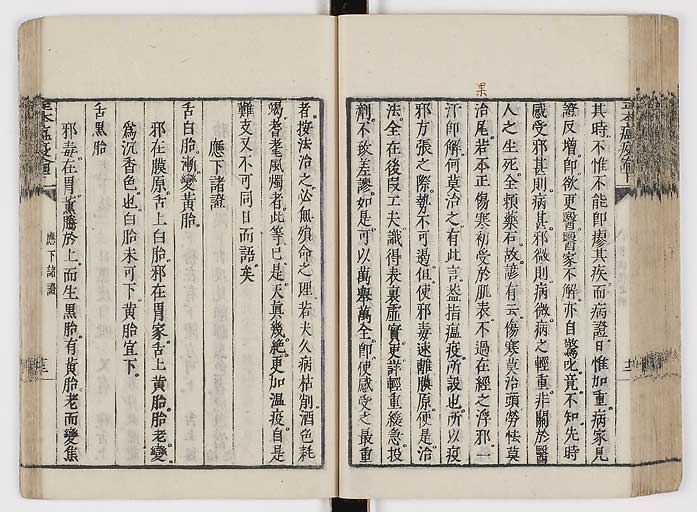 其時不惟不能即瘳其疾而病證日惟加重病家見
證反增即欲更醫醫家不解亦自驚叱竟不知先時
感受邪甚則病甚邪微則病微病之輕重非關於醫
人之生死全賴藥石故諺有云傷寒莫治頭勞怯莫
治尾若不正傷寒初受於肌表不過在經之浮邪一
汗即解何莫治之有此言葢指瘟疫所設也所以疫
邪方張之際勢不可遏但使邪毒速離膜原便是治
法全在後段工夫識得表裏虛實更詳輕重緩急投
劑不致差謬如是可以萬舉萬全即使感受之最重
者按法治之必無殞命之理若夫久病枯削酒色耗
竭耆耄風燭者此等已是天真幾絕更加溫疫自是
難支又不可同日而語矣
應下諸證
舌白胎漸變黄胎
邪在膜原舌上白胎邪在胃家舌上黄胎胎老變
為沉香色也白胎未可下黄胎宜下
舌黒胎
邪毒在胃薰騰於上而生黒胎有黄胎老而變焦
應下諸證